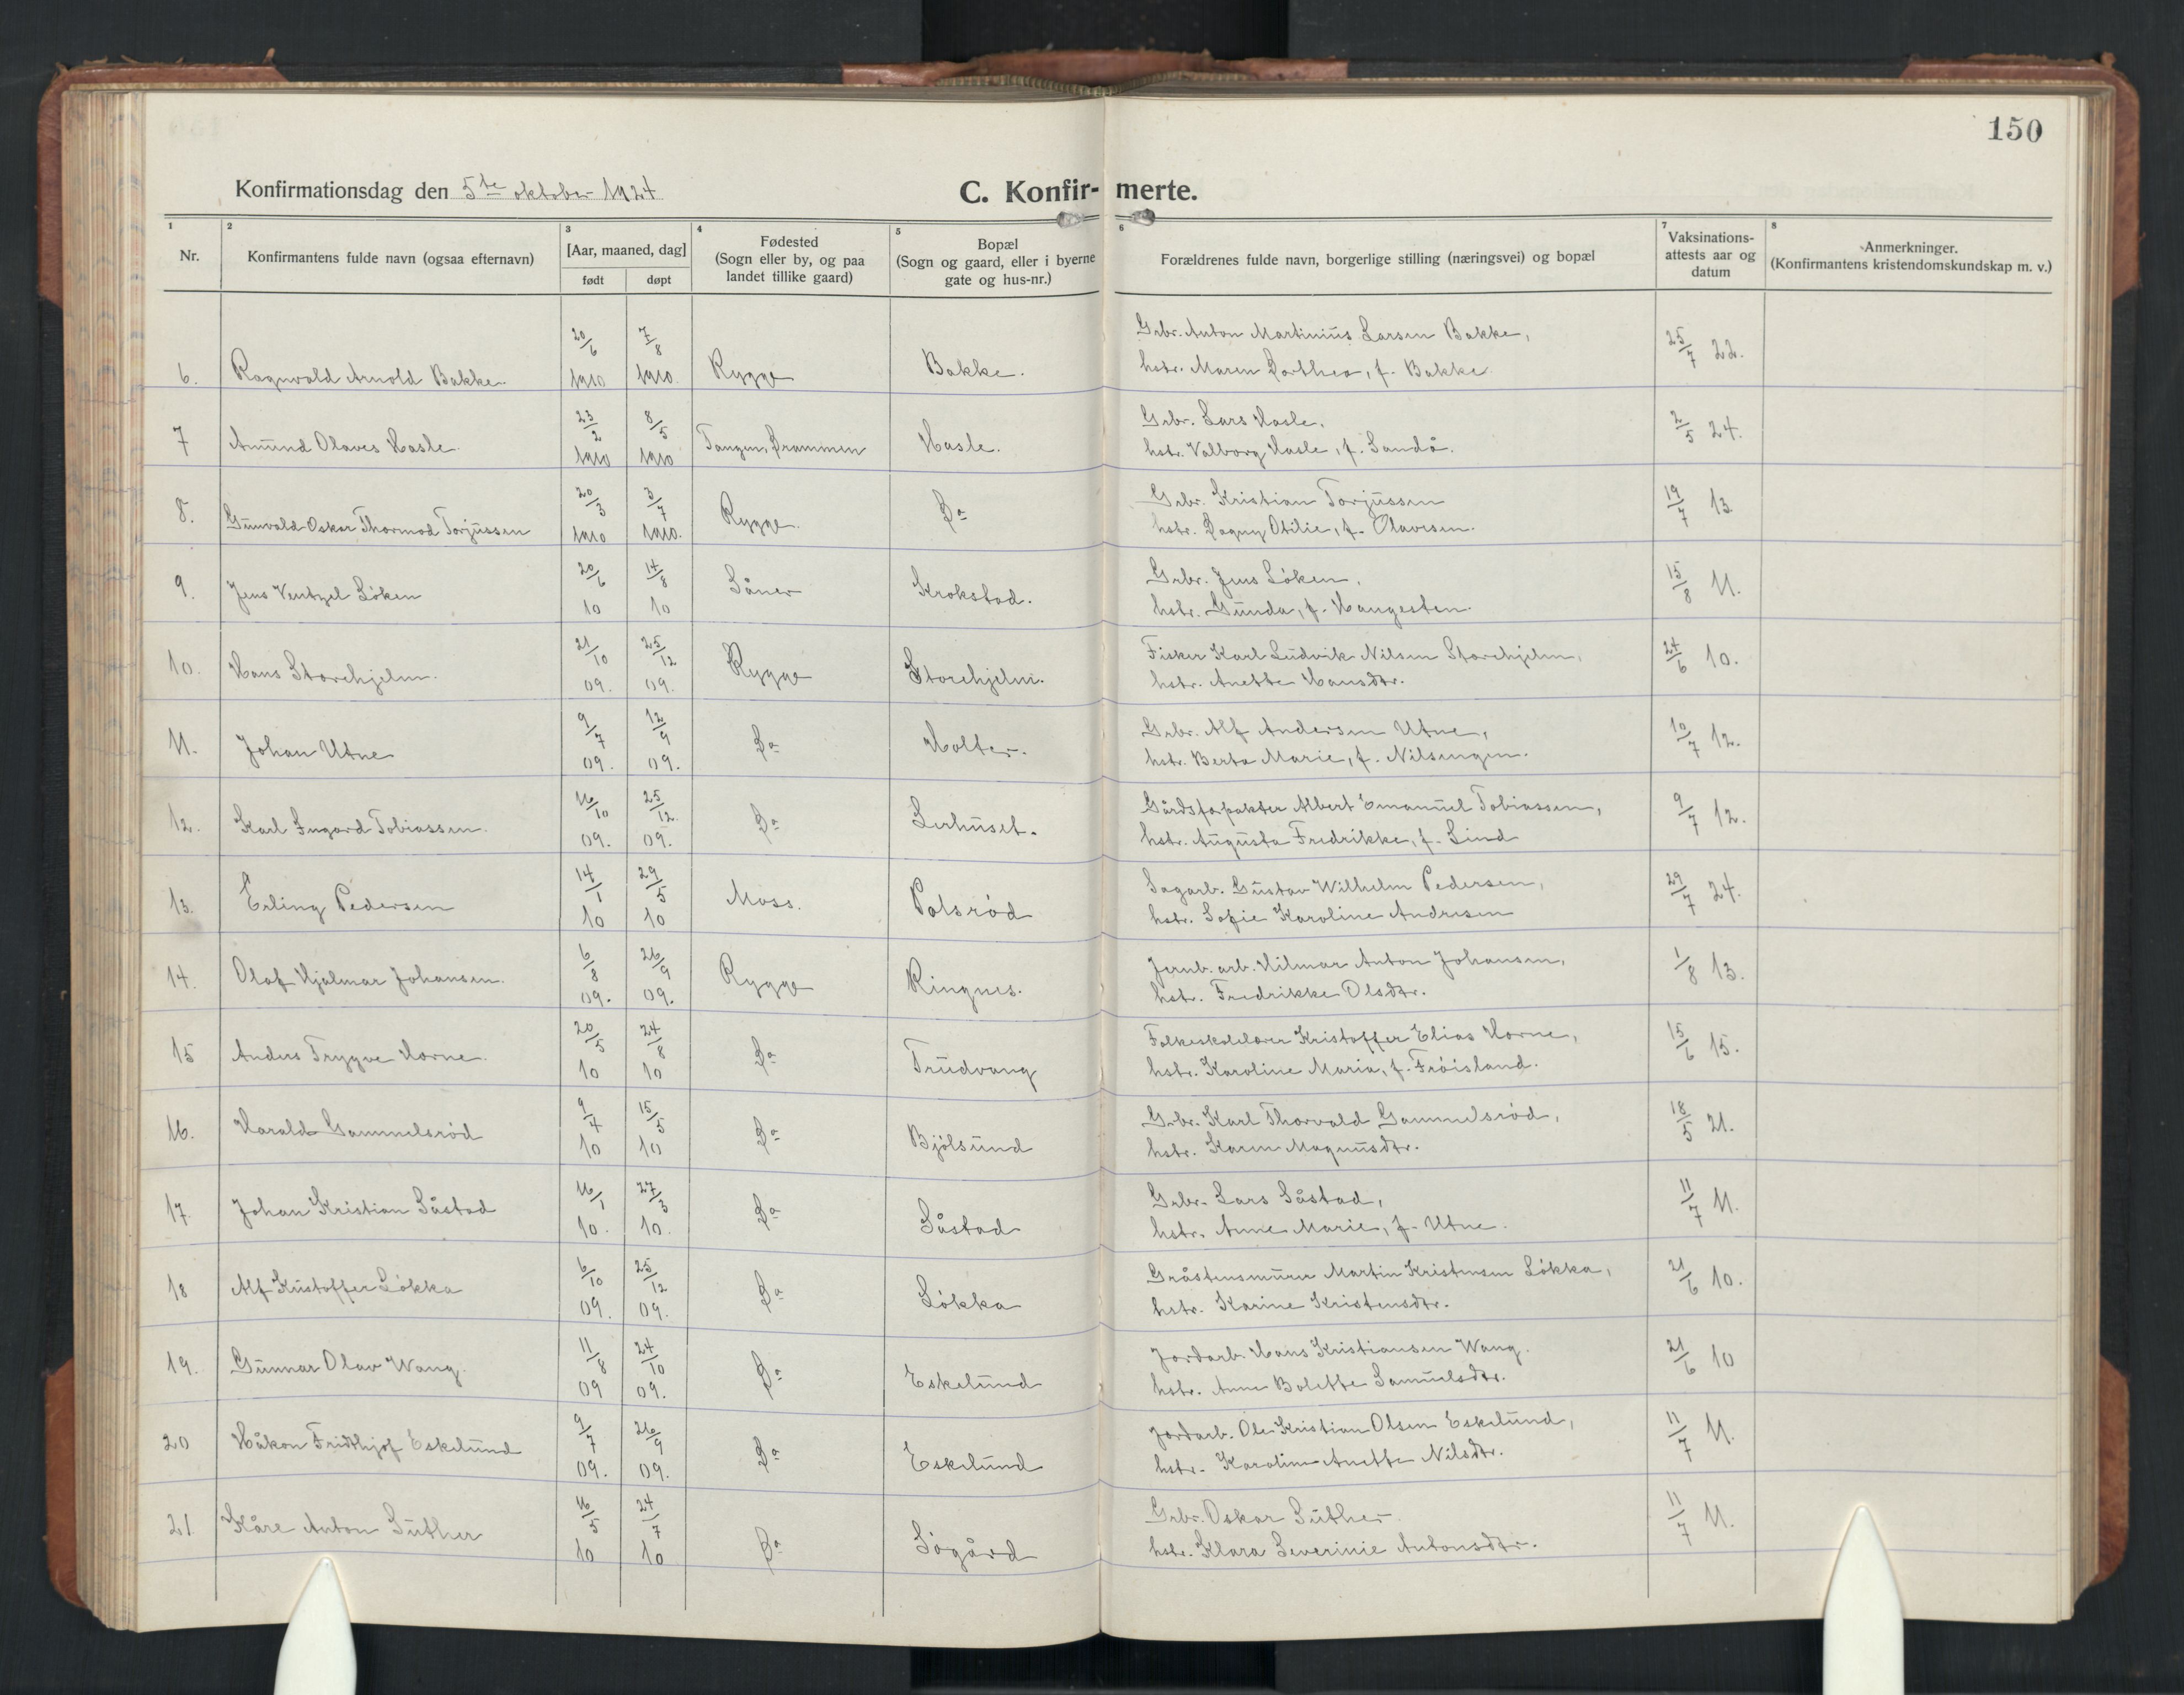 150
Konfirmationsdag den 5te oktober 1924
C. Konfir- merte.
1 2 3 4 5 6 7 8
Nr.
Konfirmantens fulde navn (ogsaa efternavn)
[Aar, maaned, dag]
født døpt
Fødested
(Sogn eller by, og paa
landet tillike gaard)
Bopæl
(Sogn og gaard, eller i byerne
gate og hus-nr.)
Forældrenes fulde navn, borgerlige stilling (næringsvei) og bopæl
Vaksinations-
attests aar og
datum
Anmerkninger.
(Konfirmantens kristendomskundskap m. v.)
6. Ragnvald Arnold Bakke. 20/6 1910 7/8 1910. Rygge Bakke. Grbr. Anton Martinius Larsen Bakke, 25/7 22.
hstr. Maren Dorthea, f. Bakke.
7 Amund Olaves Hasle. 23/2 1910 8/5 1910 Tangen, Drammen Hasle. Grbr. Lars Hasle, 2/5 24.
hstr. Valborg Hasle, f. Sandå.
8. Gunvald Oskar Thormod Torjussen 20/3 1910 3/7 1910. Rygge. Do Grbr. Kristian Torjussen 19/7 13
hstr. Dagny Otilie, f. Olavesen.
9. Jens Ventzel Löken 20/6 10 14/8 10 Såner Krokstad. Grbr. Jens Löken, 15/8 11.
hstr. Gunda, f. Haugesten.
10. Hans Storehjelm. 21/10 09. 25/12 09. Rygge Storehjelm. Fisker Karl Ludvik Nilsen Storehjelm, 24/6 10.
hstr. Anette Hansdtr.
11. Johan Utne 9/7 09. 12/9 09. Do Holter. Grbr. Alf Andersen Utne, 10/7 12.
hstr. Berta Marie, f. Nilsengen.
12. Karl Ingard Tobiassen. 16/10 09. 25/12. 09. Do Lerhuset. Gårdsforpakter Albert Emanuel Tobiassen, 9/7 12.
hstr. Augusta Fredrikke, f. Lind
13. Erling Pedersen 14/1 10 29/5 10 Moss. Polsröd Sagarb. Gustav Wilhelm Pedersen, 29/7 24.
hstr. Sofie Karoline Andresen
14. Olaf Hjalmar Johansen. 6/8 09. 26/9 09. Rygge Ringnes. Jernb. arb. Hilmar Anton Johansen, 1/8 13.
hstr. Fredrikke Olsdtr.
15 Anders Trygve Horne. 20/5 10 24/8 10 Do Trudvang Folkeskolelærer Kristoffer Elias Horne, 15/6 15.
hstr. Karoline Maria, f. Fröisland.
16. Harald Gammelsröd 9/7 10 15/5 10 Do Bjölsund Grbr. Karl Thorvald Gammelsröd, 18/5 21.
hstr. Karen Magnusdtr.
17. Johan Kristian Såstad 16/1 10. 27/3 10. Do Såstad Grbr. Lars Såstad, 11/7 11.
hstr. Anne Marie, f. Utne.
18 Alf Kristoffer Lökka 6/10 09. 25/12 09. Do Lökka Gråstensmurer Martin Kristensen Lökka, 21/6 10.
hstr. Karine Kristensdtr.
19. Gunnar Olav Wang. 11/8 09 24/10 09. Do Eskelund Jordarb. Hans Kristiansen Wang. 21/6 10
hstr. Anne Bolette Samuelsdtr.
20 Håkon Fridthjof Eskelund 9/7 09. 26/9 09. Do Eskelund Jordarb. Ole Kristian Olsen Eskelund, 11/7 11.
hstr. Karoline Anette Nilsdtr.
21. Kåre Anton Suther 16/5 10 24/7 10 Do Sögård Grbr. Oskar Suther. 11/7 11.
hstr. Klara Severinie Antonsdtr.